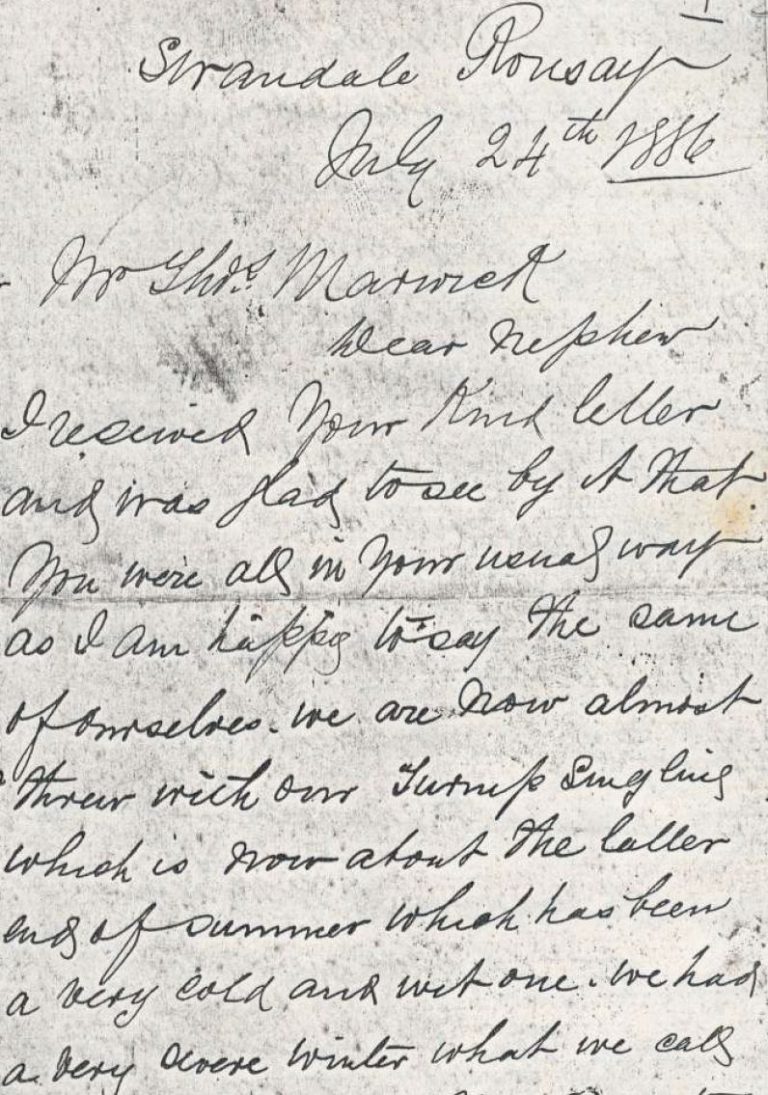 1
Swandale Rousay
July 24th 1886
Mr Thos. Marwick
Dear Nephew
I reseived Your Kind letter
and was glad to see by it that
You were all in Your usual way
as I am happy to say the same
of ourselves. we are now almost
threw with our Turnip Singling
which is now about the latter
end of summer which has been
a very cold and wet one. we had
a very severe winter what we call